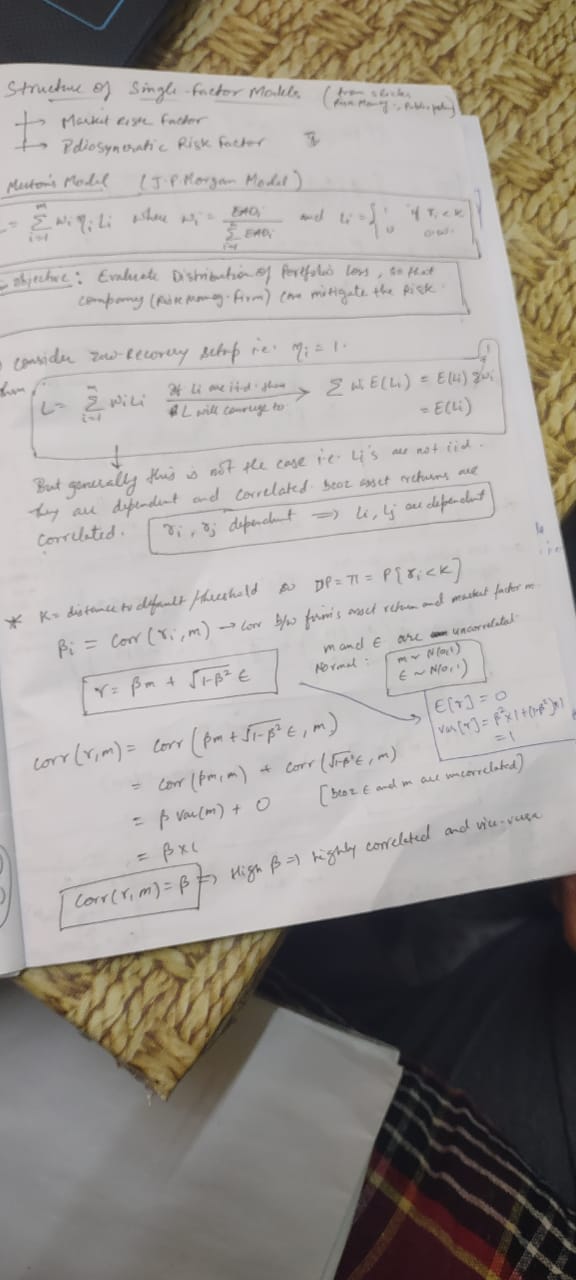 Structure of Single-Factor Models (from slides Risk Manag., Public policy)
→ Market Risk Factor
→ Idiosyncratic Risk Factor
Merton's Model (J.P. Morgan Model)
L = \sum_{i=1}^{m} w_i η_i L_i where w_i = EAD_i / \sum_{i=1}^{m} EAD_i and L_i = { 1 if r_i < K
0 o.w.
objective: Evaluate Distribution of Portfolio's loss, so that
company (Risk Manag. Firm) can mitigate the Risk.
consider zero-Recovery setup i.e. η_i = 1.
then
L = \sum_{i=1}^{m} w_i L_i —If L_i are iid then L will converge to→ Σ w_i E(L_i) = E(L_i) Σ w_i
= E(L_i)
But generally this is not the case i.e. L_i's are not iid.
they are dependent and correlated. becoz asset returns are
correlated. r_i, r_j dependent ⇒ L_i, L_j are dependent
* K = distance to default / threshold so DP = π = P{r_i < K}
β_i = corr(r_i, m) → corr b/w firm's asset return and market factor m.
m and ε are uncorrelated
Normal: m ~ N(0,1)
ε ~ N(0,1)
r = βm + √1-β² ε
E[r] = 0
var[r] = β²×1 + (1-β²)×1
= 1
corr(r,m) = corr(βm + √1-β² ε, m)
= corr(βm, m) + corr(√1-β² ε, m)
= β var(m) + 0 [becoz ε and m are uncorrelated]
= β×1
corr(r,m) = β ⇒ High β ⇒ highly correlated and vice-versa